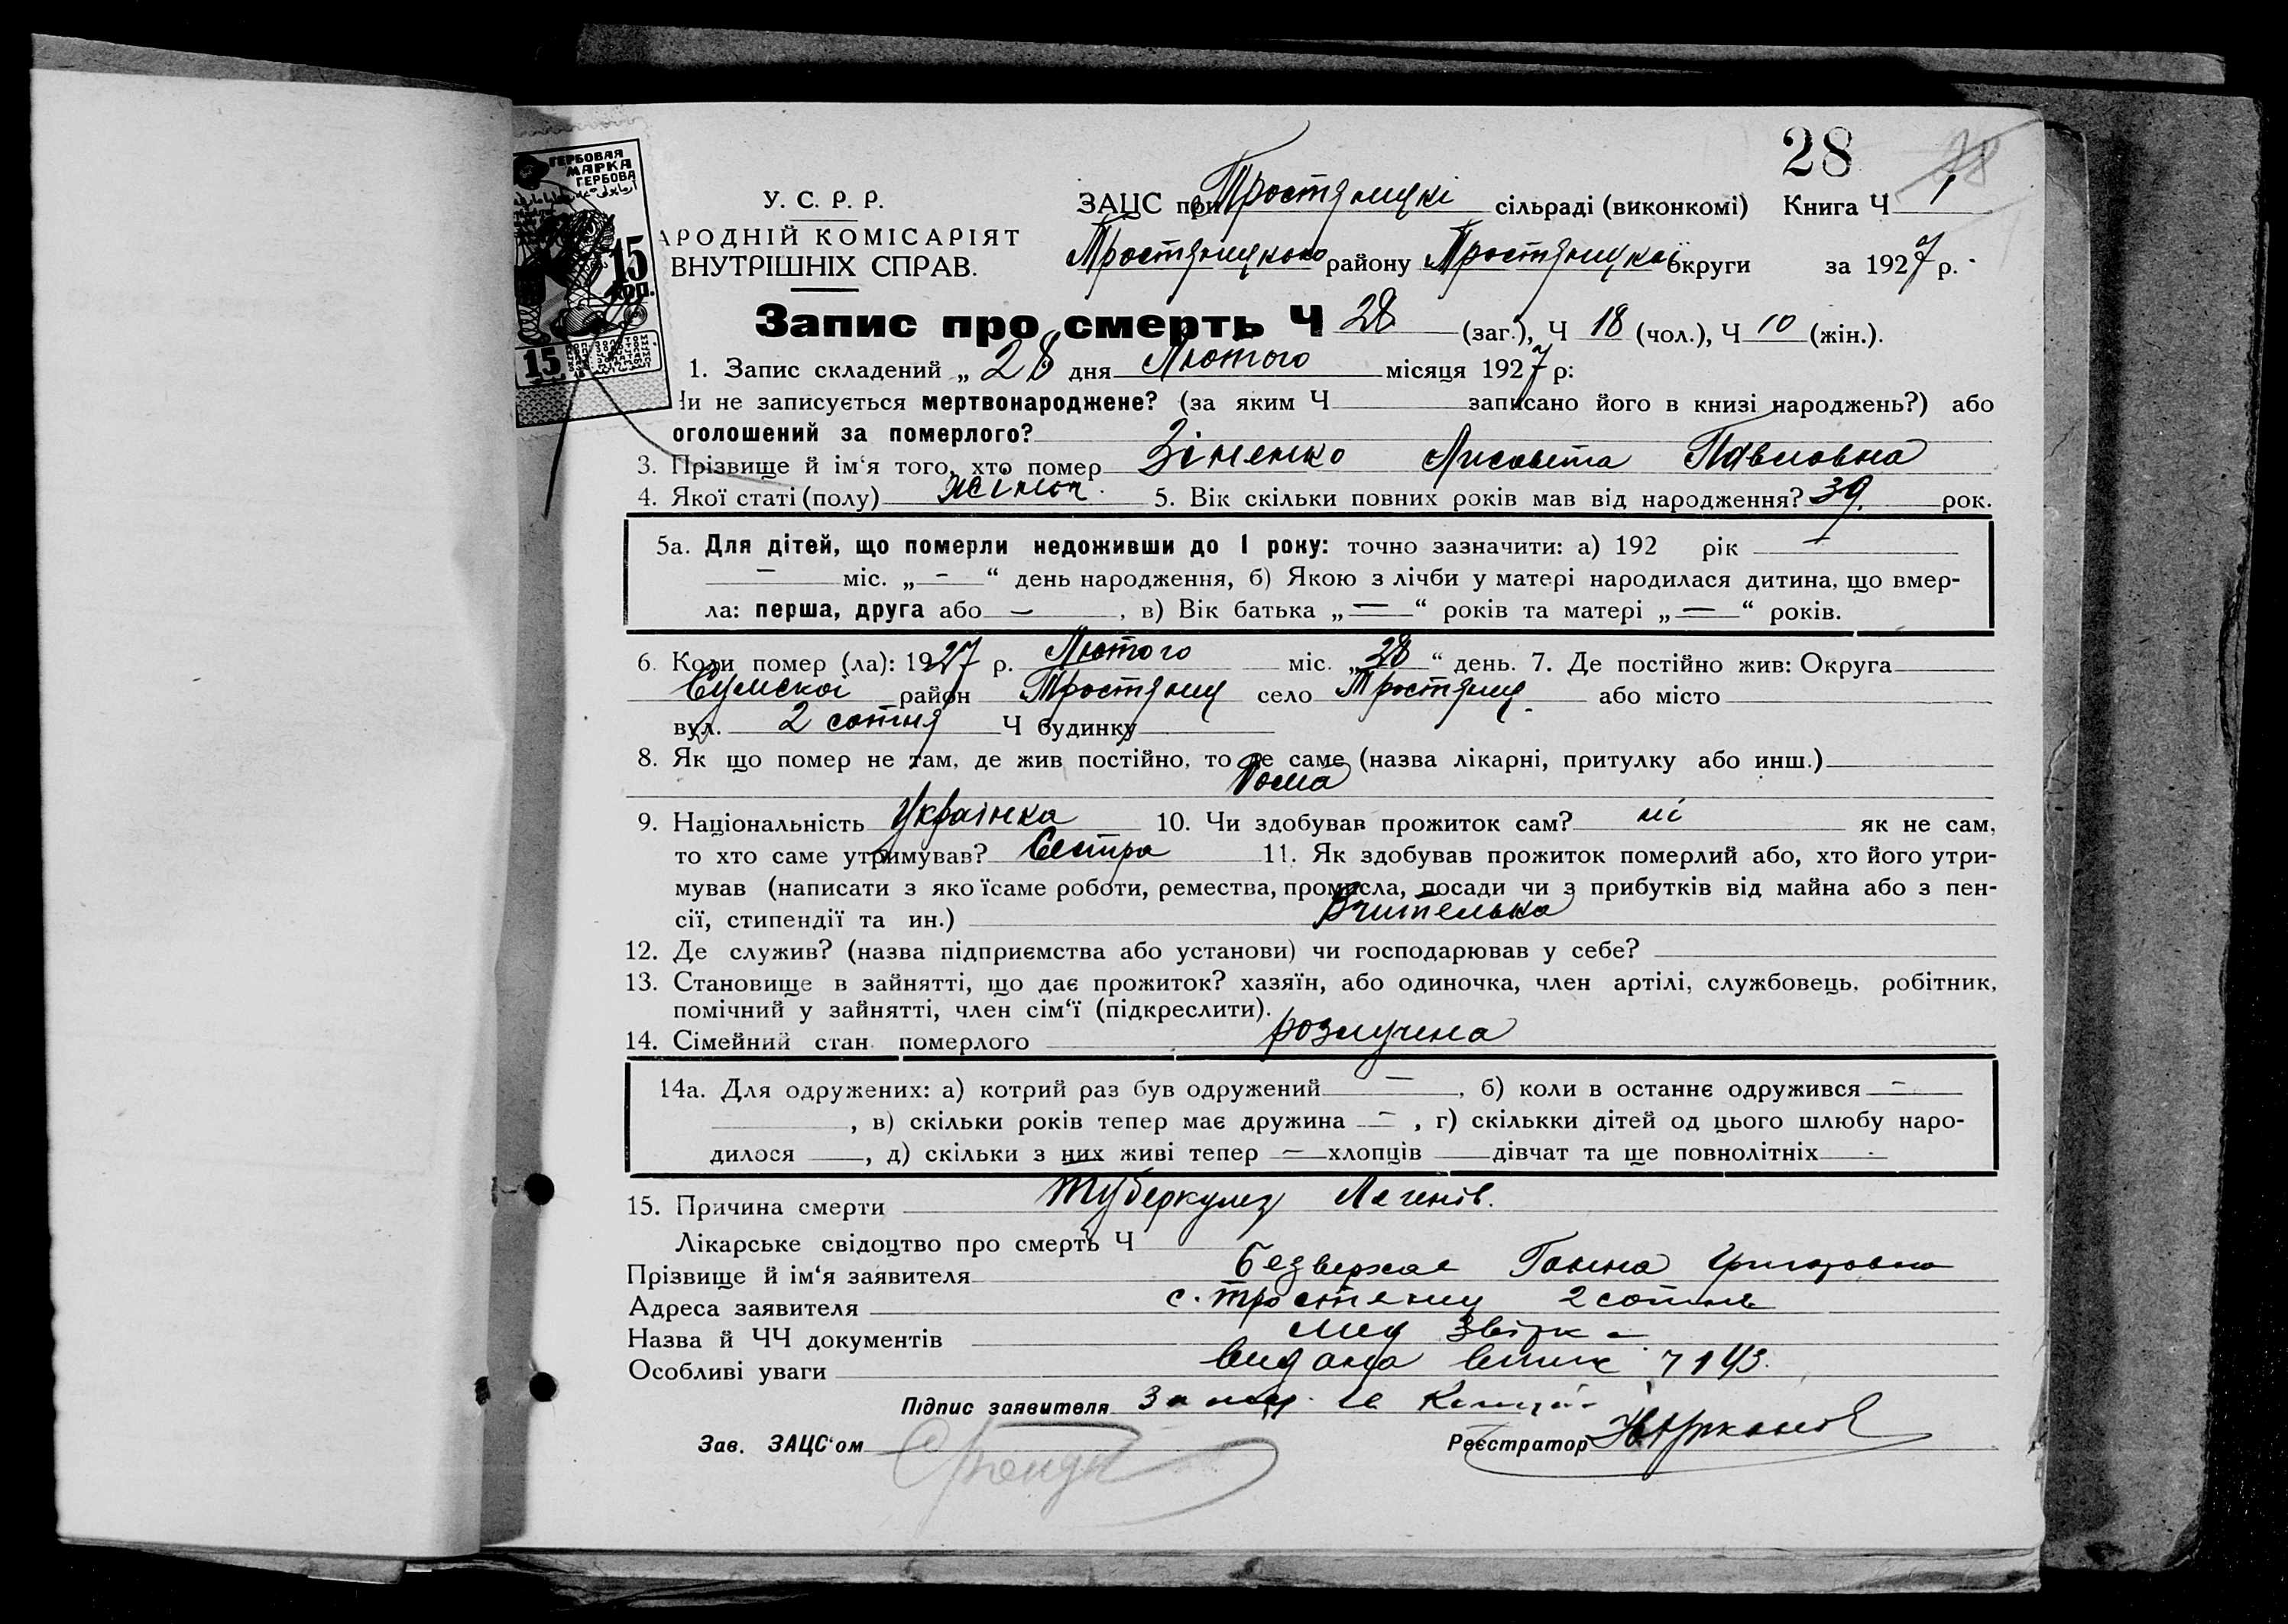 28 28
ГЕРБОВАЯ
МАРКА
ГЕРБОВА
15
КОП.
15
У. С. Р. Р.
АРОДНІЙ КОМІСАРІЯТ
ВНУТРІШНІХ СПРАВ.
ЗАЦС при Тростяницкі сільраді (виконкомі) Книга Ч 1
Тростяницкого району Тростяницкої округи за 1927 р.
Запис про смерть Ч 28 (заг.), Ч 18 (чол.), Ч 10 (жін.).
1. Запис складений „ 28 дня Лютого місяця 1927 р:
Чи не записується мертвонароджене? (за яким Ч записано його в книзі народжень?) або
оголошений за померлого?
3. Прізвище й ім‘я того, хто помер Зіненко Лисавета Павловна
4. Якої статі (полу) жіноч. 5. Вік скільки повних років мав від народження? 39. рок.
5а. Для дітей, що померли недоживши до 1 року: точно зазначити: а) 192 рік —
— міс. „ - “ день народження, б) Якою з лічби у матері народилася дитина, що вмер-
ла: перша, друга або — , в) Вік батька „ — “ років та матері „ — “ років.
6. Коли помер (ла): 1927 р. Лютого міс. „ 28 “ день. 7. Де постійно жив: Округа
Сумскої район Тростянец село Тростянец або місто
вул. 2 сотня Ч будинку
8. Як що помер не там, де жив постійно, то де саме (назва лікарні, притулку або инш.)
Дома
9. Національність Українка 10. Чи здобував прожиток сам? ні як не сам,
то хто саме утримував? Сестра 11. Як здобував прожиток померлий або, хто його утри-
мував (написати з яко їсаме роботи, ремества, промисла, посади чи з прибутків від майна або з пен-
сії, стипендії та ин.) Вчителька
12. Де служив? (назва підприємства або установи) чи господарював у себе?
13. Становище в зайнятті, що дає прожиток? хазяїн, або одиночка, член артілі, службовець, робітник,
помічний у зайнятті, член сім‘ї (підкреслити).
14. Сімейний стан померлого розлучена
14а. Для одружених: а) котрий раз був одружений — , б) коли в останнє одружився —
, в) скільки років тепер має дружина — , г) скількки дітей од цього шлюбу наро-
дилося , д) скільки з них живі тепер — хлопців дівчат та ще повнолітніх -
15. Причина смерти туберкулез Легенів.
Лікарське свідоцтво про смерть Ч
Прізвище й ім‘я заявителя Безверхая Ганна Григоровна
Адреса заявителя с. Тростянец 2 сотня
Назва й ЧЧ документів
Особливі уваги видана 7143.
Підпис заявителя За
Зав. ЗАЦС‘ом
Реєстратор